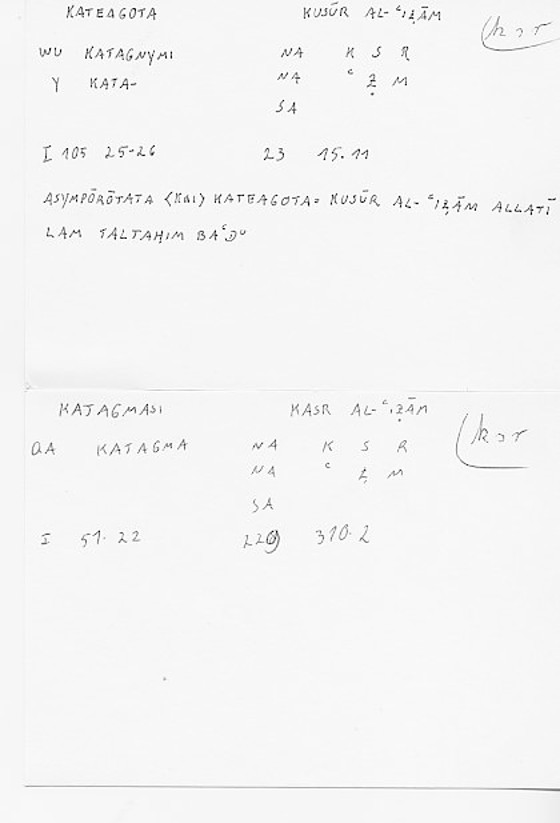 KATEAGOTA KUSŪR AL-ʿIẒĀM (ksr
WU KATAGNYMI NA K S R
Y KATA- NA ʿ Ẓ M
SA
I 105 25-26 23 15.11
ASYMPŌRŌTATA <KAI> KATEAGOTA= KUSŪR AL-ʿIẒĀM ALLATĪ
LAM TALTAḤIM BAʿDU
KATAGMASI KASR AL-ʿIẒĀM (ksr
QA KATAGMA NA K S R
NA ʿ Ẓ M
SA
I 51.22 229 310.2